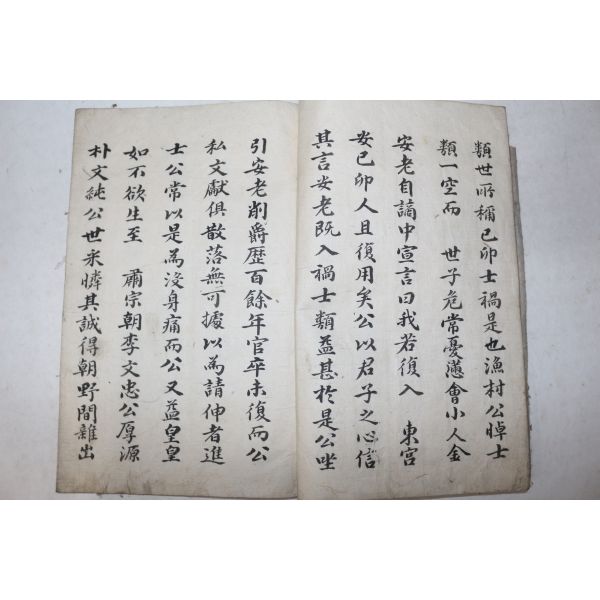 類世所稱己卯士禍是也漁村公悼士
類一空而 世子危常憂懣會小人金
安老自謫中宣言曰我若復入 東宮
安己卯人且復用矣公以君子之心信
其言安老旣入禍士類益甚於是公坐
引安老削爵歷百餘年官卒未復而公
私文獻俱散落無可據以為請伸者進
士公常以是為沒身痛而公又益皇皇
如不欲生至 肅宗朝李文忠公厚源
朴文純公世采憐其誠得朝野間雜出